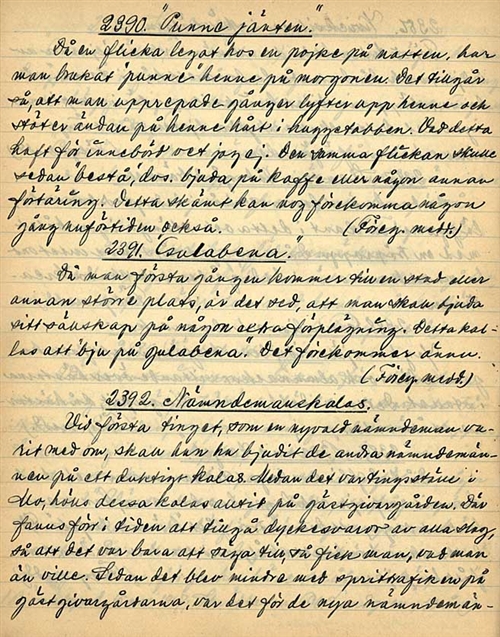 2390. "Punne jänten."
Då en flicka legat hos en pojke på natten, har
man brukat "punne" henne på morgonen. Det tillgår
så, att man upprepade gånger lyfter upp henne och
stöter ändan på henne hårt i huggstabben. Vad detta
haft för innebörd vet jag ej. Den samma flickan skulle
sedan bestå, dvs. bjuda på kaffe eller någon annan
förtäring. Detta skämt kan nog förekomma någon
gång nuförtiden också. (Föreg. medd.)
2391. "Galabena."
Då man första gången kommer till en stad eller
annan större plats, är det sed, att man skall bjuda
sitt sällskap på någon extra förplägning. Detta kal-
las att "bju på galabena". Det förekommer ännu.
(Föreg. medd.)
2392. Nämndemanskalas.
Vid första tinget, som en nyvald nämndeman va-
rit med om, skall han ha bjudit de andra nämndemän-
nen på ett duktigt kalas. Medan det var tingsställe i
Mo, hölls dessa kalas alltid på gästgivargården. Där
fanns förr i tiden att tillgå dyckesvaror av alla slag,
så att det var bara att säga till, så fick man, vad man
än ville. Sedan det blev mindre med sprittrafiken på
gästgivargårdarna, var det för de nya nämndemän-